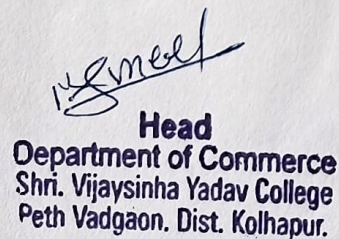 Head
Department of Commerce
Shri. Vijaysinha Yadav College
Peth Vadgaon. Dist. Kolhapur.